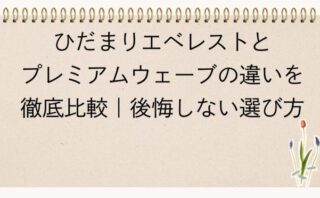 ひだまりエベレストと
プレミアムウェーブの違いを
徹底比較｜後悔しない選び方